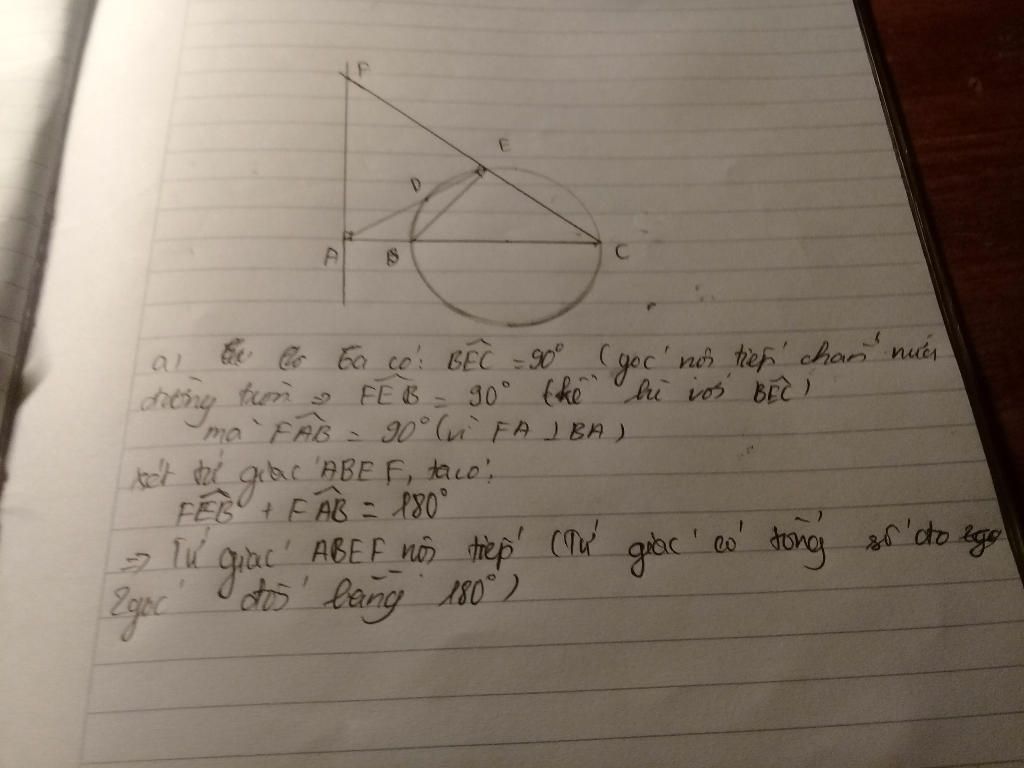 F
E
D
A
B
C
a) Ta có: BÊC = 90° (góc nội tiếp chắn nửa
đường tròn ⇒ FÊB = 90° (kề bù với BÊC)
mà FÂB = 90° (vì FA ⊥ BA)
Xét tứ giác ABEF, ta có:
FÊB + FÂB = 180°
⇒ Tứ giác ABEF nội tiếp (Tứ giác có tổng số đo
2 góc đối bằng 180°)